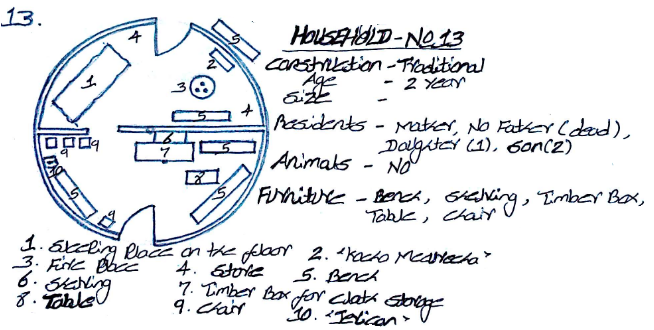 13.
HOUSEHOLD - NO 13
Construction - Traditional
Age - 2 year
Size -
Residents - Mother, No Father (dead),
Daughter (1), Son (2)
Animals - NO
Furniture - Bench, Shelving, Timber Box,
Table, Chair
4
5
2
1
3
5
4
9
9
6
7
5
10
8
5
5
9
1. Sleeping Place on the floor 2.
3. Fire Place 4. Store 5. Bench
6. Shelving 7. Timber Box for Cloth Storage
8. Table 9. Chair 10. "Jelican"